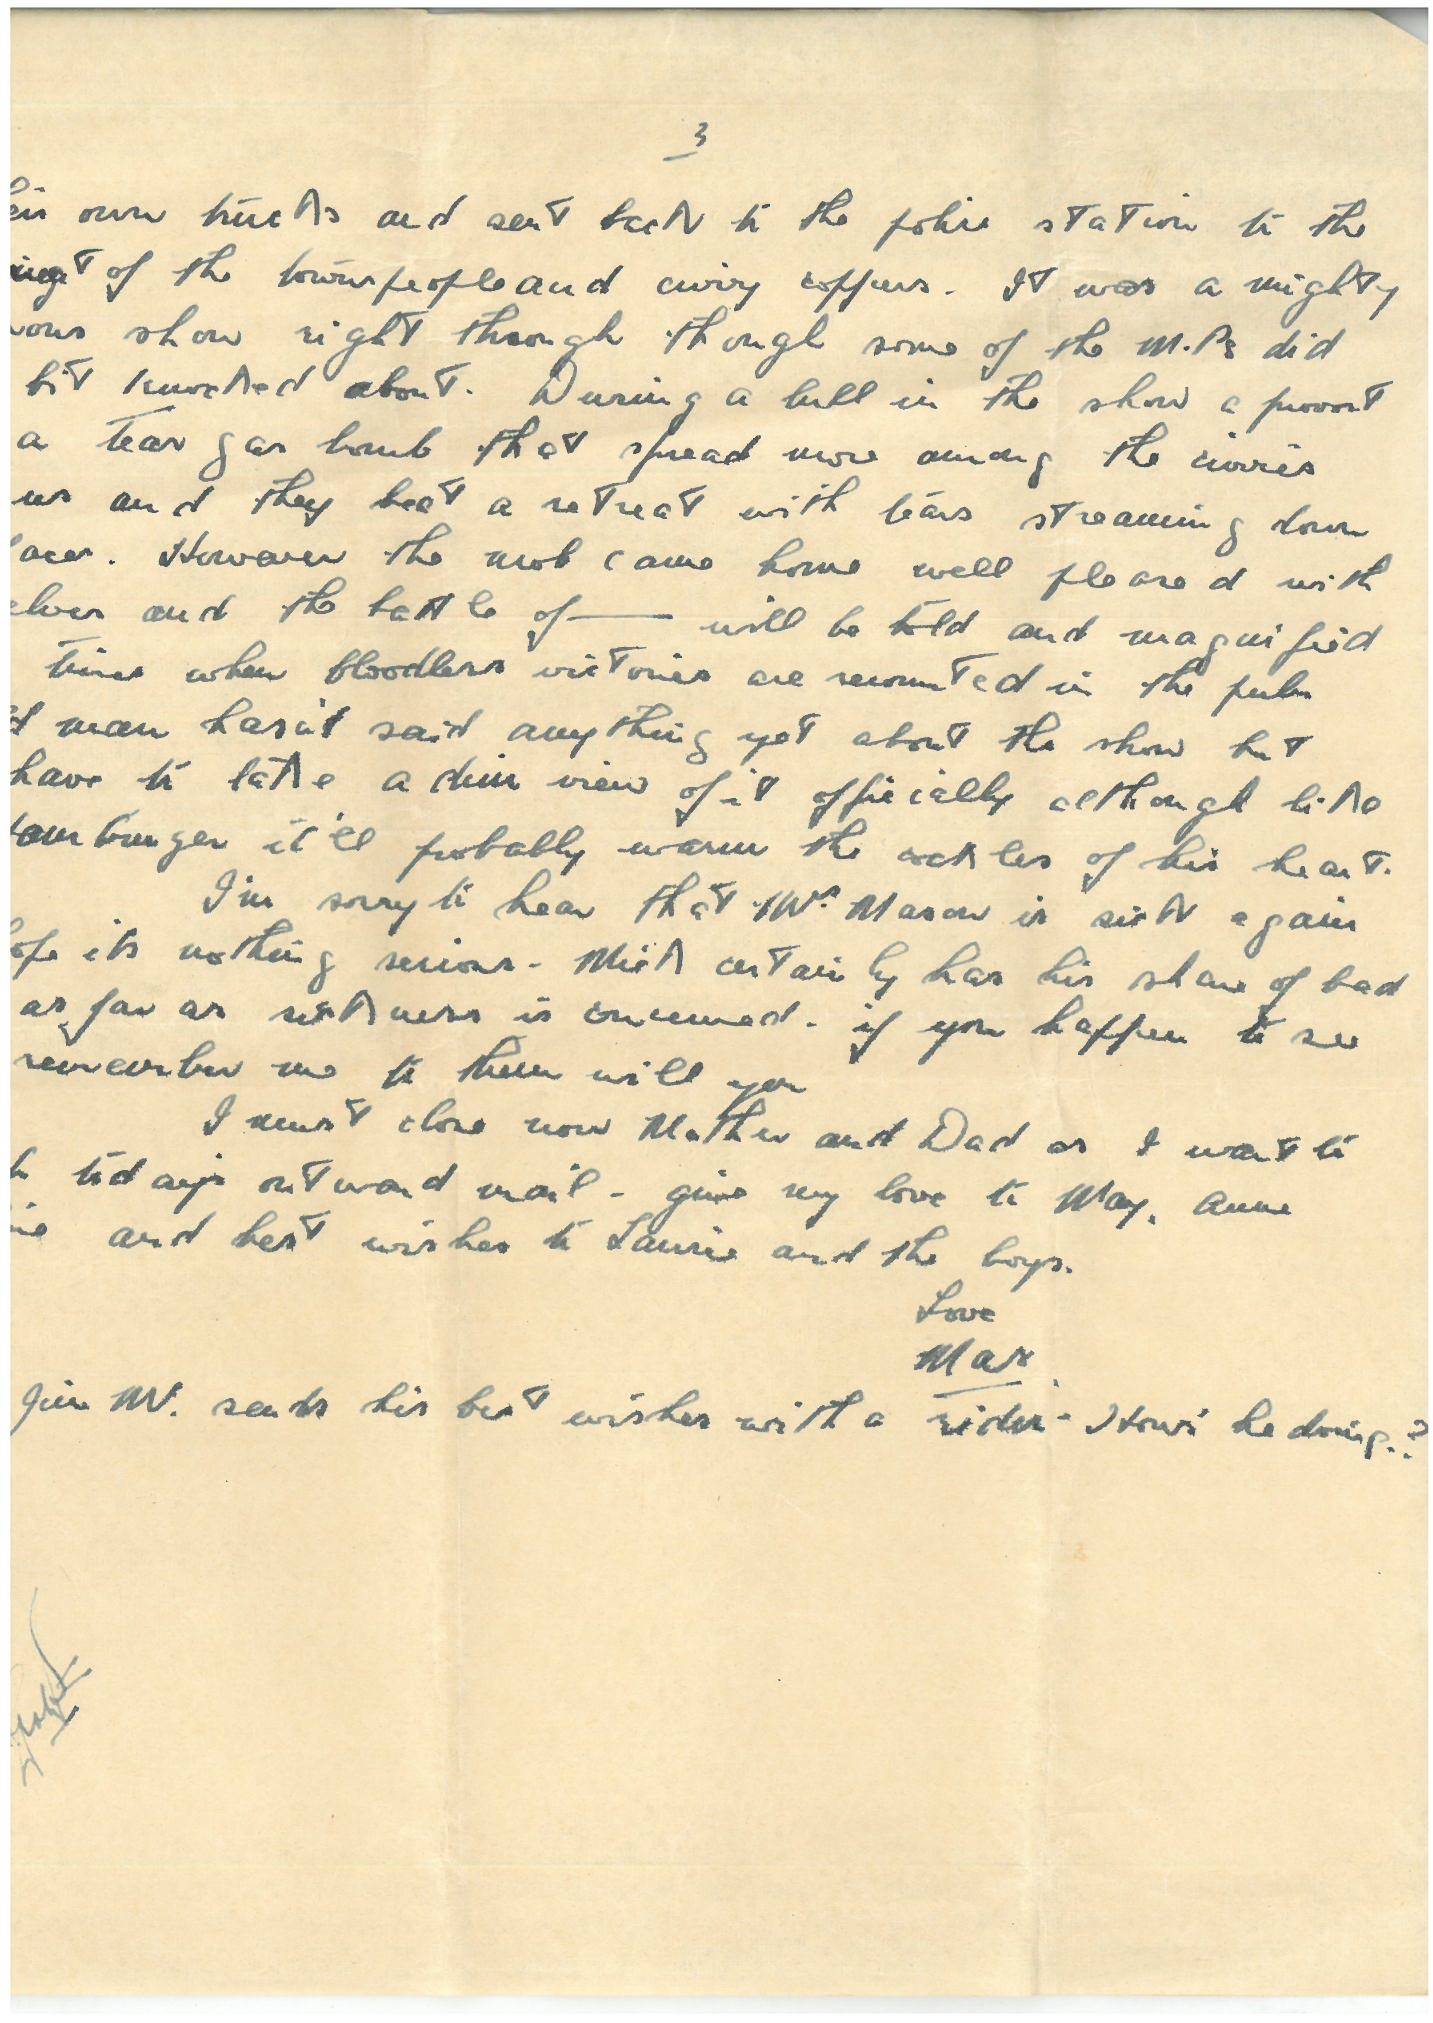 3
own trucks and sent back to the police station to the
of the townspeople and civvy coppers. It was a mighty
show right through though some of the M.Ps did
bit knocked about. During a lull in the show a provost
a tear gas bomb that spread more among the civvies
us and they beat a retreat with tears streaming down
. However the mob came home well pleased with
elves and the battle of —— will be told and magnified
time when bloodless victories are recounted in the pubs
man hasn't said anything yet about the show but
have to take a dim view of it officially although like
it'll probably warm the cockles of his heart.
I'm sorry to hear that Mrs Mason is sick again
its nothing serious - Mick certainly has his share of bad
as far as sickness is concerned - if you happen to see
remember me to them will you
I must close now Mother and Dad as I want to
todays outward mail - give my love to May, Anne
and best wishes to Laurie and the boys.
Love
Max
Jim W. sends his best wishes with a rider - How's he doing.?